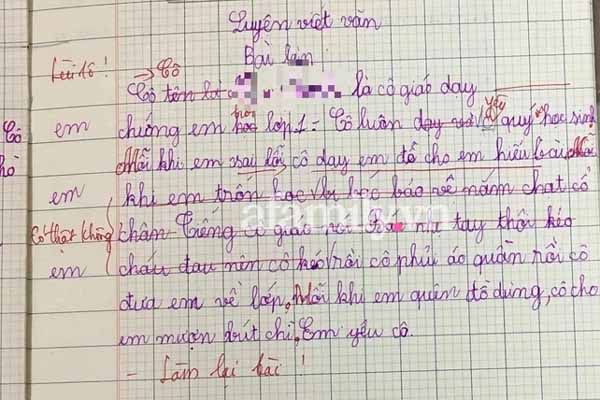 Luyện viết văn
Bài làm
Lùi lề! → Cô
Cô tên là là cô giáo dạy
Cô em chúng em học trong lớp 1. Cô luôn dạy yêu quý học sinh
Mỗi khi em sai lỗi cô dạy em để cho em hiểu bài. Mỗi
em khi em trốn học bị bảo về nắm chạt cổ
Có thật không chân Tiếng cô giáo như tay thôi kéo
em cháu đau nên cô kéo rồi cô phủi áo quần rồi cô
đưa em về lớp, Mỗi khi em quên đồ dùng, cô cho
em mượn bút chì, Em yêu cô.
- Làm lại bài!
afamily.vn